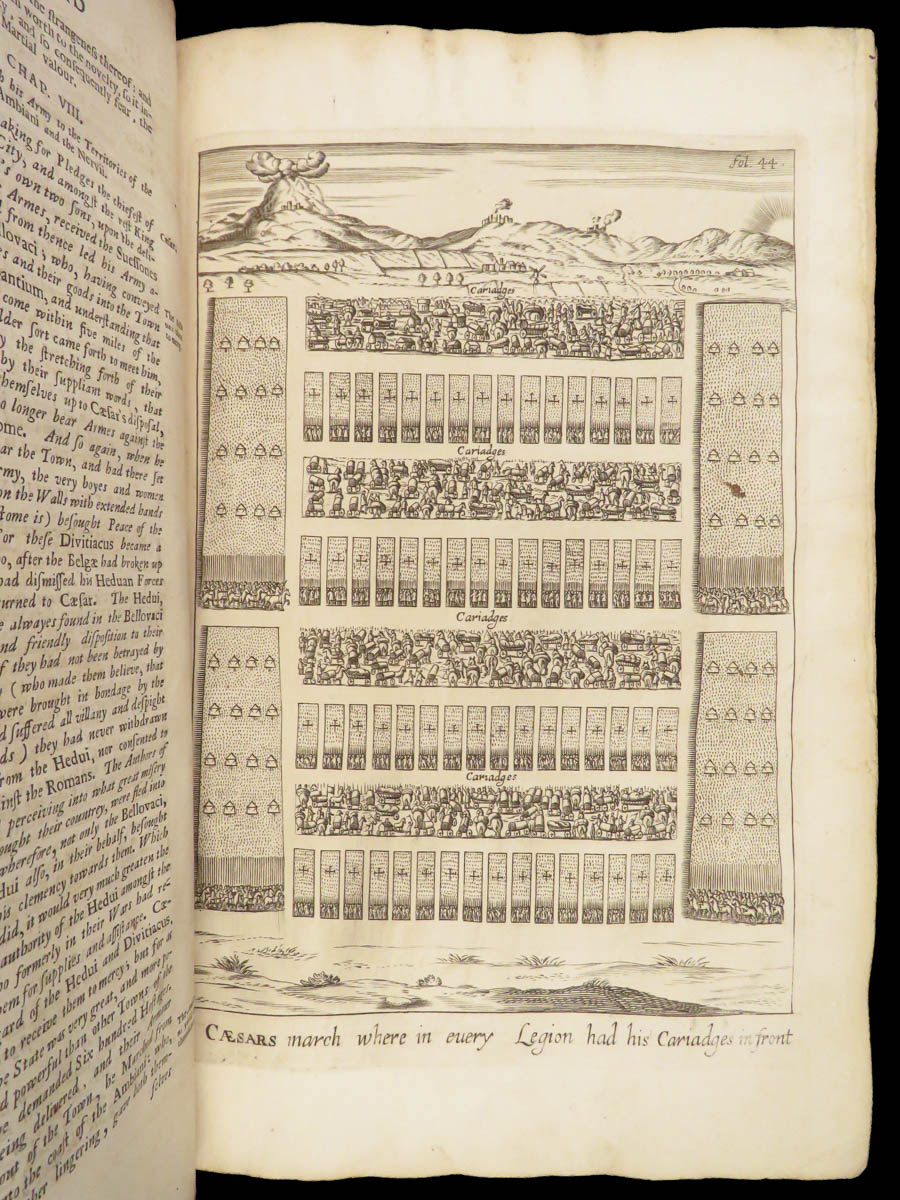 the strangeness thereof; and
worth to the novelty, so it in-
and so consequently fear, the
Martial valour.
CHAP. VIII.
his Army to the Territories of the
Ambiani and the Nervii.
aking for Pledges the chiefest of
City, and amongst the rest King
's own two sons, upon the deli-
Armes, received the Suessones
d from thence led his Army a-
llovaci; who, having conveyed
es and their goods into the Town
antium, and understanding that
come within five miles of the
lder sort came forth to meet him,
y the stretching forth of their
by their suppliant words, that
hemselves up to Cæsar's disposal,
o longer bear Armes against the
ome. And so again, when he
ear the Town, and had there set
rmy, the very boyes and women
on the Walls with extended hands
tome is) besought Peace of the
For these Divitiacus became a
ho, after the Belgæ had broken up
had dismissed his Heduan Forces
turned to Cæsar. The Hedui,
e alwayes found in the Bellovaci
and friendly disposition to their
f they had not been betrayed by
(who made them believe, that
were brought in bondage by the
d suffered all villany and despight
ds) they had never withdrawn
from the Hedui, nor consented to
inst the Romans. The Authors of
perceiving into what great misery
ought their country, were fled into
wherefore, not only the Bellovaci,
dui also, in their behalf, besought
his clemency towards them. Which
did, it would very much greaten the
authority of the Hedui amongst the
o formerly in their Wars had re-
em for supplies and assistance. Cæ-
ard of the Hedui and Divitiacus,
to receive them to mercy; but for as
he State was very great, and more po-
d powerful than other Towns of the
he demanded Six hundred Hostages.
eing delivered, and their Armour
out of the Town, he Marched from
nto the coast of the Ambiani: who,
her lingering, gave both them-
selves
Cæsar.
fol. 44.
Cariadges
Cariadges
Cariadges
Cariadges
CÆSARS march where in euery Legion had his Cariadges in front